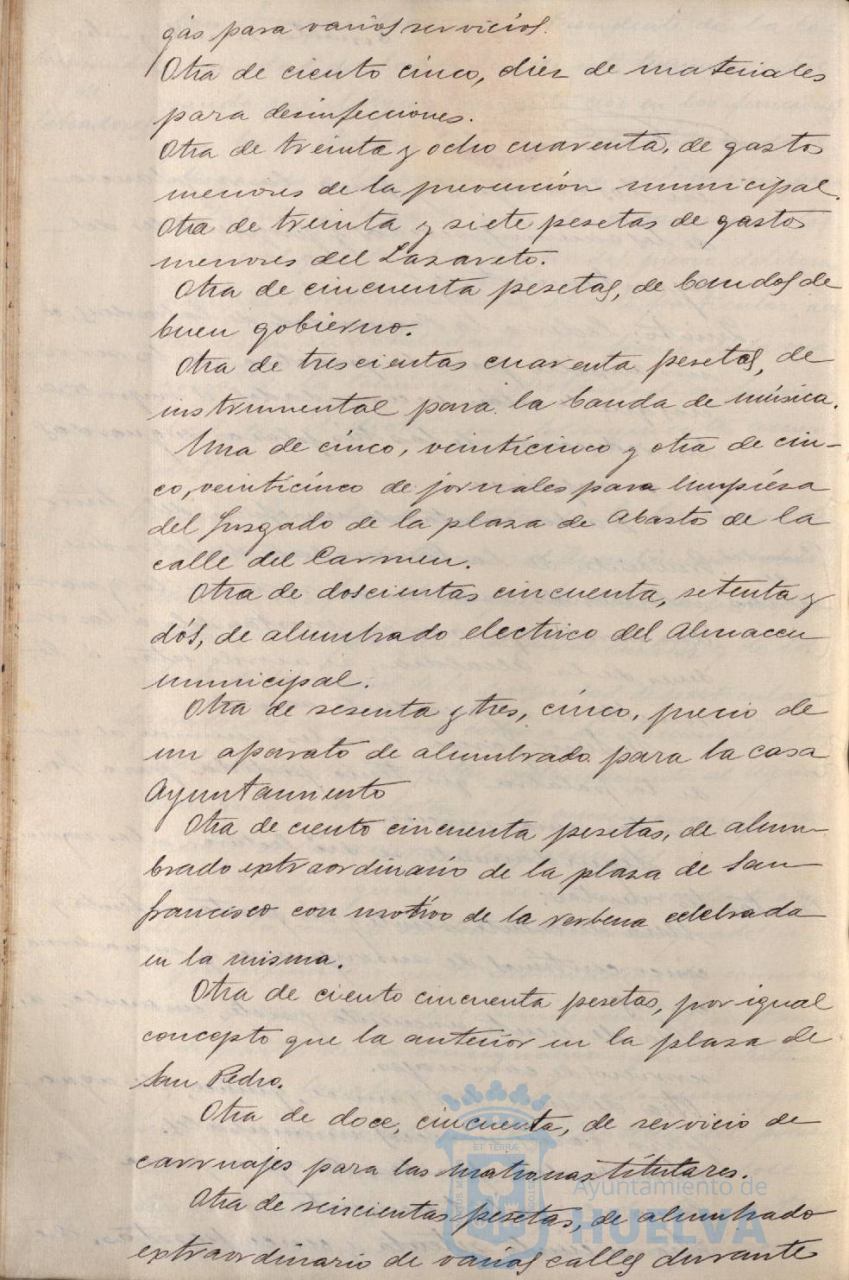 gas para varios servicios.
Otra de ciento cinco, diez de materiales
para desinfecciones.
Otra de treinta y ocho cuarenta, de gastos
menores de la prevención municipal.
Otra de treinta y siete pesetas de gastos
menores del Lazareto.
Otra de cincuenta pesetas, de bandos de
buen gobierno.
Otra de trescientas cuarenta pesetas, de
instrumental para la banda de música.
Una de cinco, veinticinco y otra de cin-
co, veinticinco de jornales para limpiesa
del Jusgado de la plaza de Abasto de la
calle del Carmen.
Otra de doscientas cincuenta, setenta y
dós, de alumbrado electrico del Almacen
municipal.
Otra de sesenta y tres, cinco, precio de
un aparato de alumbrado para la casa
Ayuntamiento
Otra de ciento cincuenta pesetas, de alum-
brado extraordinario de la plaza de San
Francisco con motivo de la verbena celebrada
en la misma.
Otra de ciento cincuenta pesetas, por igual
concepto que la anterior en la plaza de
San Pedro.
Otra de doce, cincuenta, de servicio de
carruajes para las matronas titulares.
Otra de seiscientas pesetas, de alumbrado
extraordinario de varias calles durante
ET TERRA
Ayuntamiento de
HUELVA